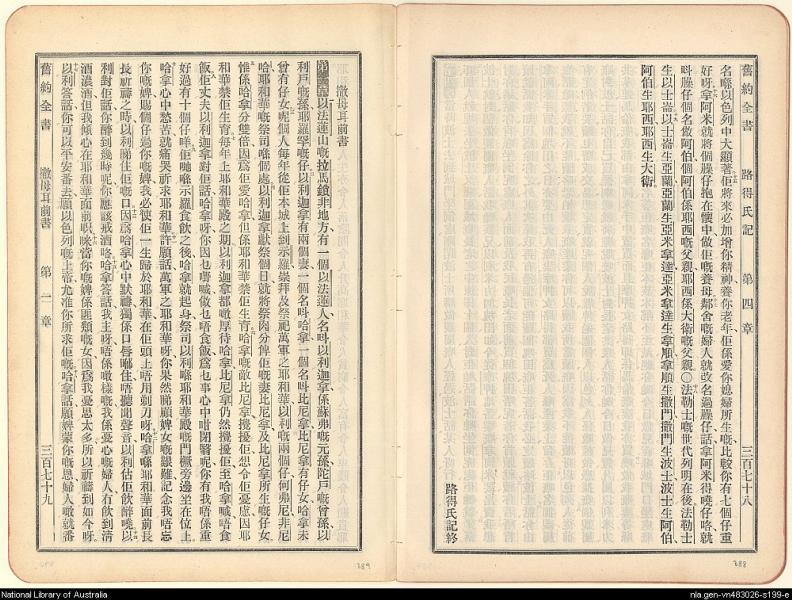 舊約全書 路得氏記 第四章 三百七十八
名喺以色列中大顯著佢將來必加增你精神養你老年佢係愛你媳婦所生嘅比較你有七個仔重
好呀拿阿米就將個臊仔抱在懷中做佢嘅養母鄰舍嘅婦人就改名過臊仔話拿阿米得曉仔咯就
呌臊仔個名做阿伯個阿伯係耶西嘅父親耶西係大衛嘅父親〇法勒士嘅世代列明在後法勒士
生以士崙以士崙生亞蘭亞蘭生亞米拿達亞米拿達生拿順拿順生撒門撒門生波士波士生阿伯
阿伯生耶西耶西生大衛
路得氏記終
388
撒母耳前書
第一章以法蓮山嘅拉馬鎖非地方有一個以法蓮人名呌以利迦拿係蘇弗嘅元孫陀戶嘅曾孫以
利戶嘅孫耶羅罕嘅仔以利迦拿有兩個妻一個名呌哈拿一個名呌比尼拿比尼拿有仔女哈拿未
曾有仔女呢個人每年從佢本城上到示羅崇拜及祭祀萬軍之耶和華以利嘅兩個仔何弗尼非尼
哈耶和華嘅祭司喺個處以利迦拿獻祭個日就將祭肉分俾佢嘅妻比尼拿及比尼拿所生嘅仔女
惟係哈拿分雙倍因爲佢愛哈拿但係耶和華禁佢生育哈拿嘅敵比尼拿攪擾佢想令佢憂慮因耶
和華禁佢生育每年上耶和華殿之期以利迦拿都噉厚待哈拿比尼拿仍然攪擾佢至哈拿喊唔食
飯佢丈夫以利迦拿對佢話哈拿呀你因乜嘢喊做乜唔食飯爲乜事心中咁閉翳呢你有我唔係重
好過有十個仔咩佢哋喺示羅食飲之後哈拿就起身祭司以利喺耶和華殿嘅門橛旁邊坐在位上
哈拿心中愁苦就痛哭祈求耶和華許願話萬軍之耶和華呀你果然睇顧婢女嘅艱難記念我唔忘
你嘅婢賜個仔過你嘅婢我必使佢一生歸於耶和華在佢頭上唔用剃刀呀哈拿喺耶和華面前長
長祈禱之時以利睇住佢嘅口因爲哈拿心中默禱獨係口唇嘟住唔聽聞聲音以利估佢飲醉曉以
利對佢話你醉到幾時呢你應該戒酒咯哈拿答話我主呀唔係噉樣嘅我係憂心嘅婦人有飲到清
酒濃酒但我傾心在耶和華面前呮咪當你嘅婢係匪類嘅女因爲我憂思太多所以祈禱到如今呀
以利答話你可以平安番去願以色列嘅上帝允准你所求佢嘅哈拿話願婢蒙你嘅恩婦人噉就番
舊約全書 撒母耳前書 第一章 三百七十九
389
National Library of Australia
nla.gen-vn483026-s199-e